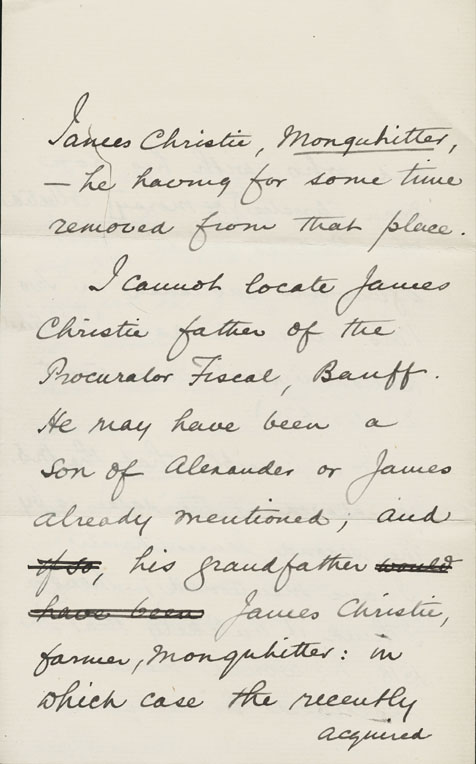 James Christie, Monquhitter,
— he having for some time
removed from that place.
I cannot locate James
Christie father of the
Procurator Fiscal, Banff.
He may have been a
son of Alexander or James
already mentioned; and
if so, his grandfather would
have been James Christie,
farmer, Monquhitter: in
which case the recently
acquired